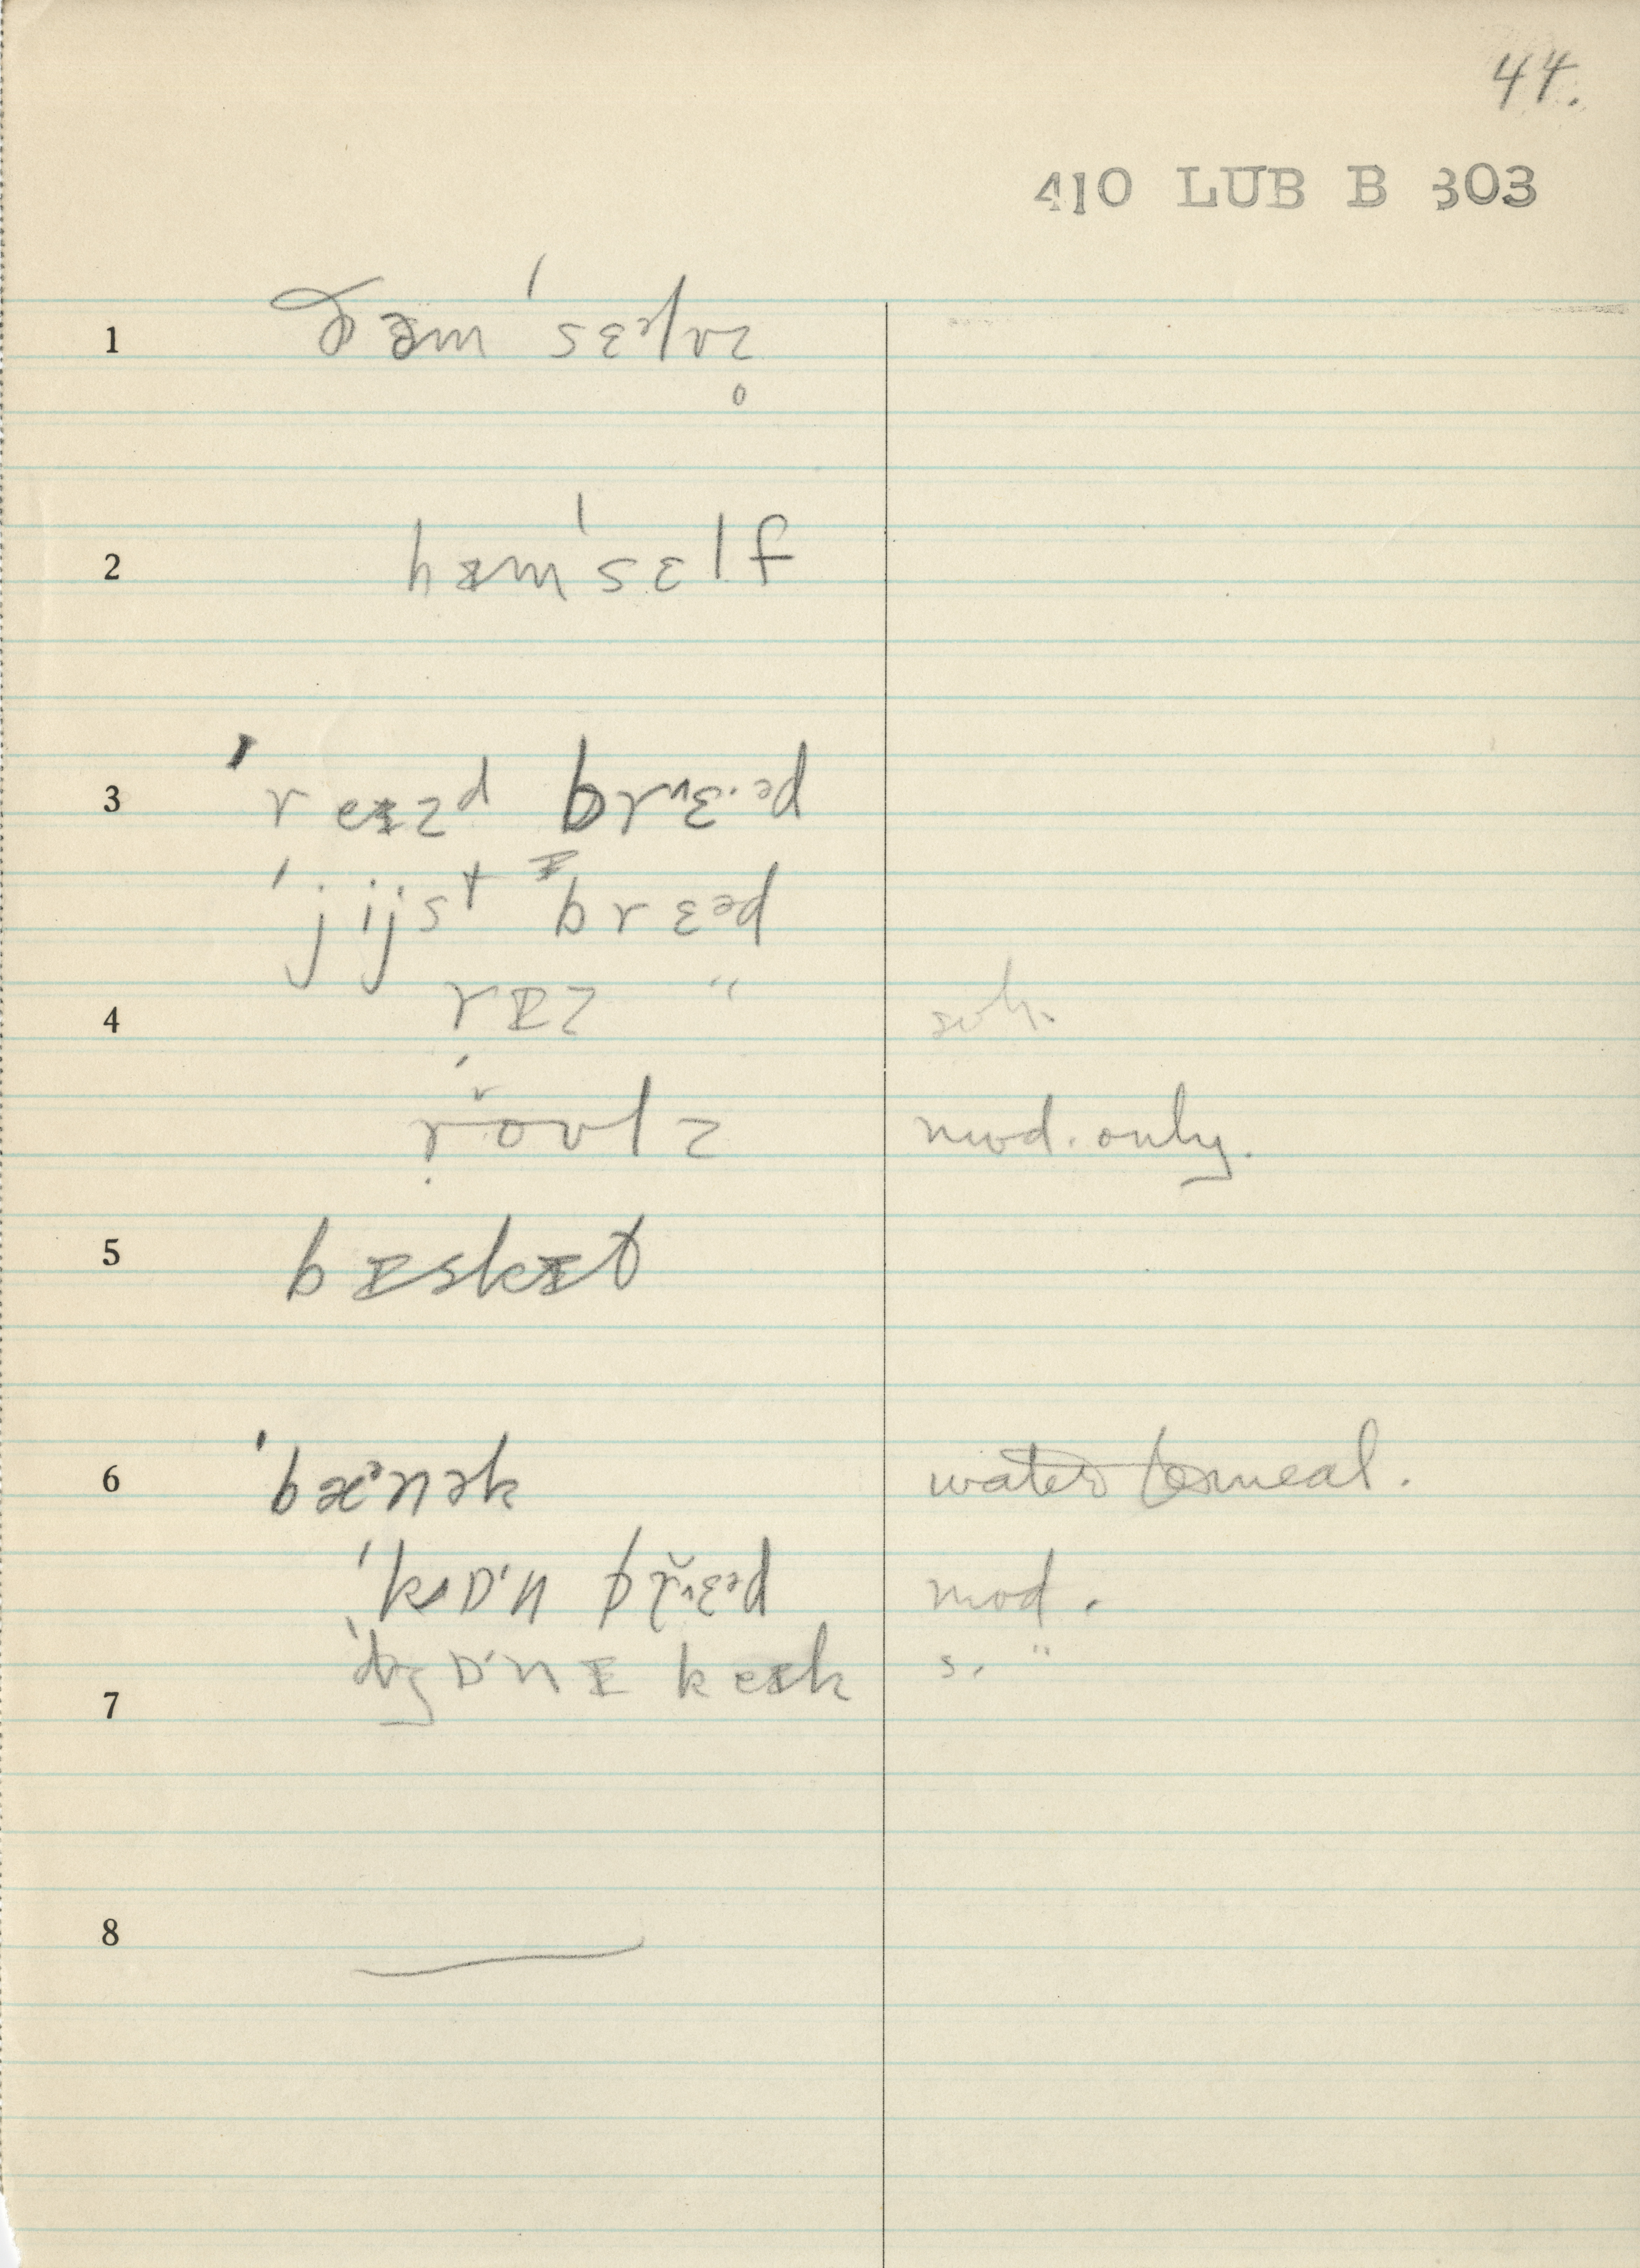 44.
410 LUB B 303
1 ðəm ˈsɛᵊlvz̥
2 hɪmˈsɛlf
3 ˈreɪzᵈ brᴧɛ·ᵊd
ˈjijst ɪ brɛᵊd
rɪz "
4
ˈroʊlz mod. only.
5 bɪskɪt
6 ˈbæᵊnək water & meal.
ˈkɒˑn brᴧɛᵊd mod.
ˈdʒɒˑnɪ keɪk s. "
7
8